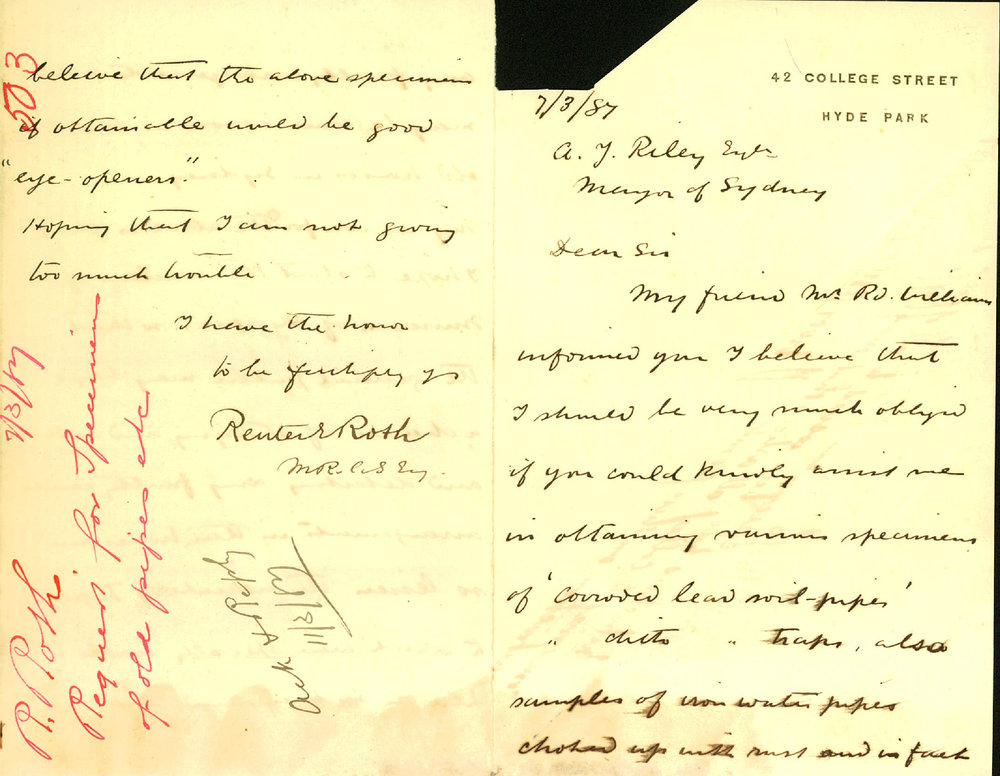 42 COLLEGE STREET
HYDE PARK
7/3/87
A. J. Riley Esqre
Mayor of Sydney
Dear Sir
My friend Mr. Rd. Williams
informed you I believe that
I should be very much obliged
if you could kindly assist me
in obtaining various specimens
of 'corroded lead soil-pipes'
" ditto " traps, also
samples of iron water pipes
choked up with rust and in fact
believe that the above specimens
if obtainable would be good
"eye-openers."
Hoping that I am not giving
too much trouble
I have the honor
to be faithfully yrs
Reuter E Roth
M.R.C.S Eng.
503
R. Roth 7/3/87
Request for Specimens
of old pipes etc
Ack & Reply
11/3/87